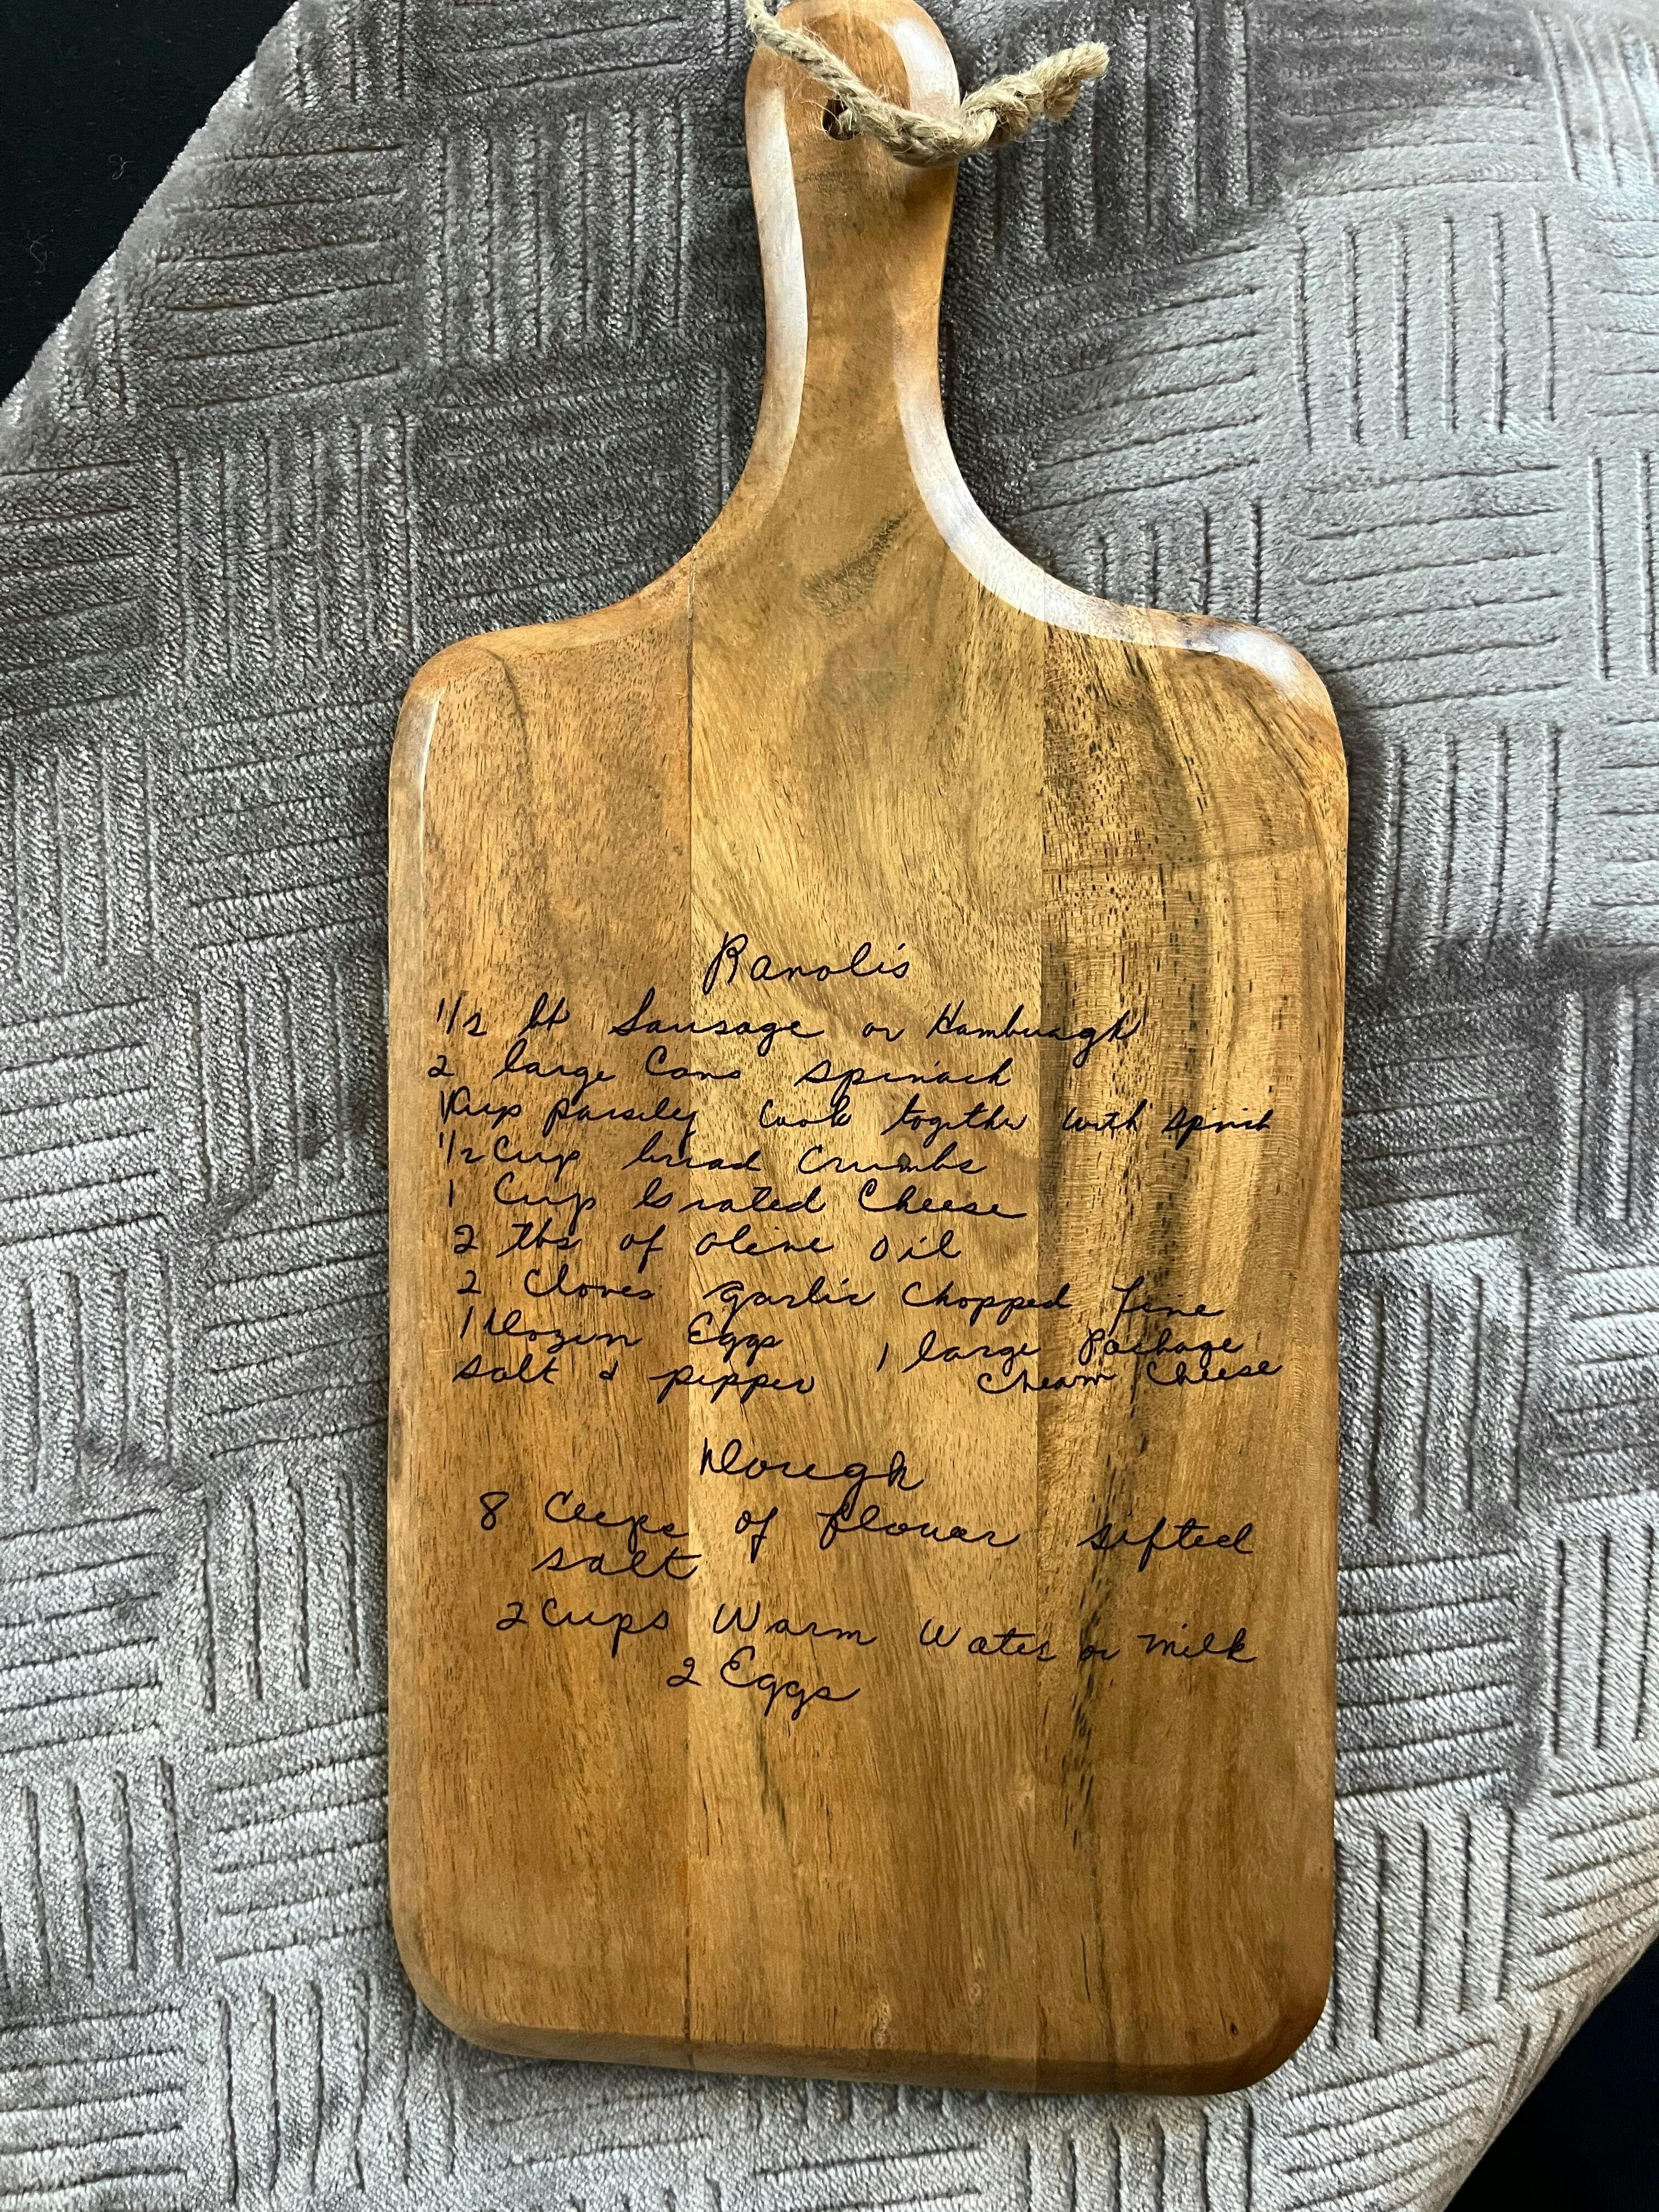 Raviolis
1/2 lb Sausage or Hamburgh
2 large Cans spinach
1 Cup parsley Cook together with spinch
1/2 Cup bread Crumbs
1 Cup Grated Cheese
2 tbs of olive oil
2 Cloves garlic Chopped fine
1 Dozen Eggs 1 large Package
salt & pepper Cream Cheese
Dough
8 Cups of flower sifted
salt
2 Cups Warm Water or milk
2 Eggs